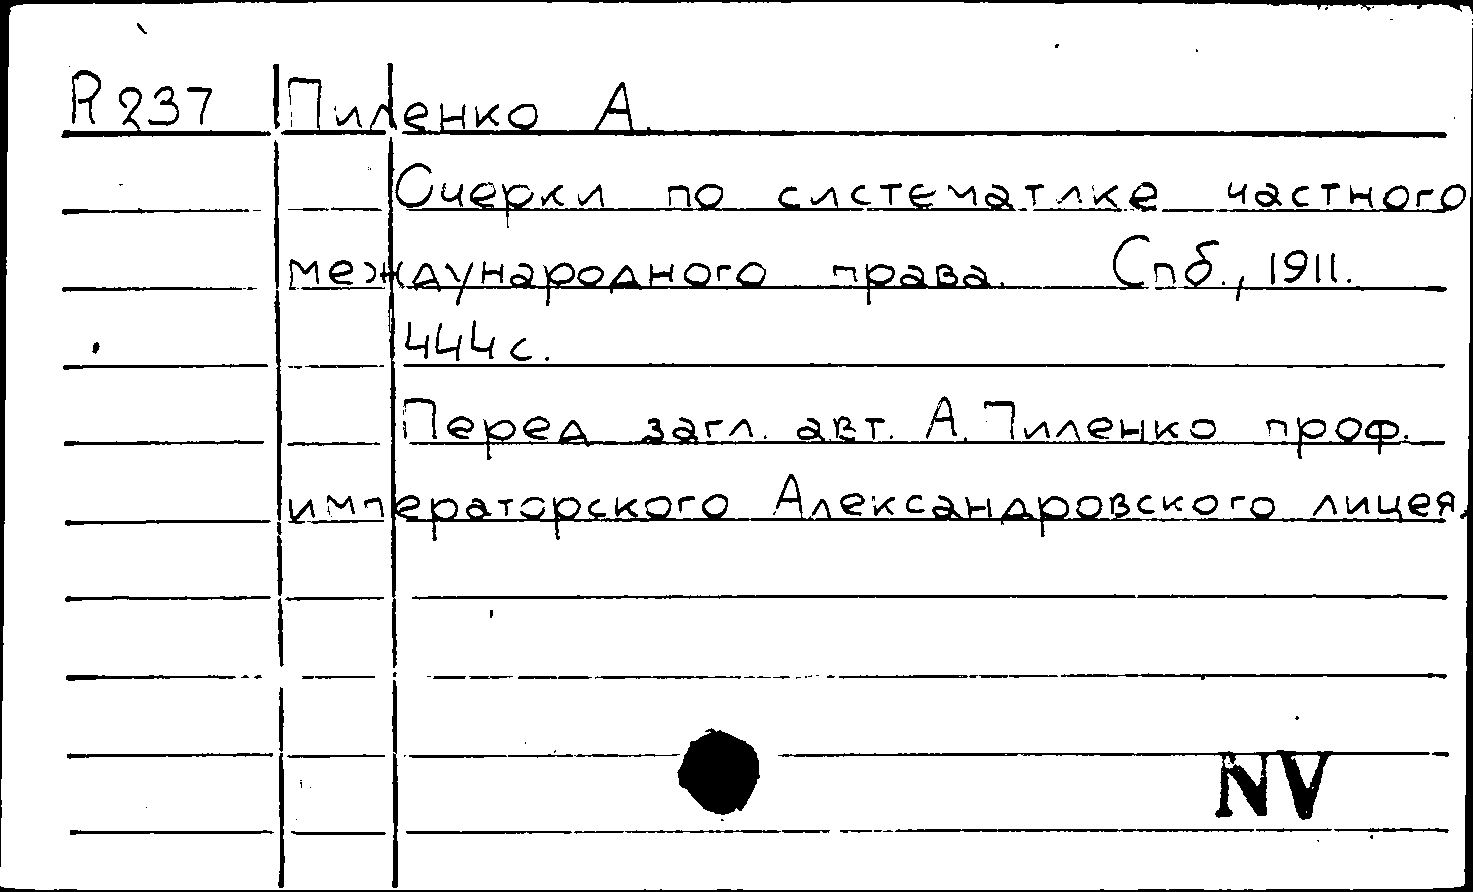 R 237 Пиленко А.
Очерки по систематике частного
международного права. Спб., 1911.
444 с.
Перед загл. авт. А. Пиленко проф.
императорского Александровского лицея.
NV